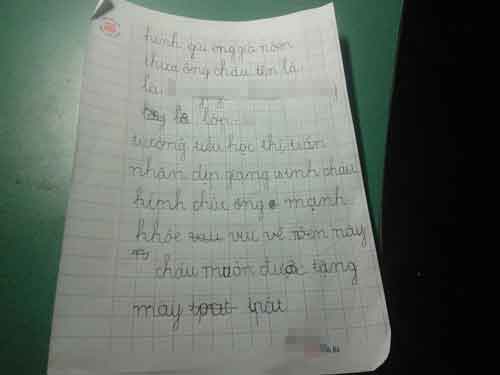 kính gửi ông già nôen
thưa ông cháu tên là
là
lớp
trường tiểu học thị trấn
nhân dịp giáng sinh cháu
kính chúc ông mạnh
khỏe vui vẻ nôen này
cháu muốn được tặng
máy